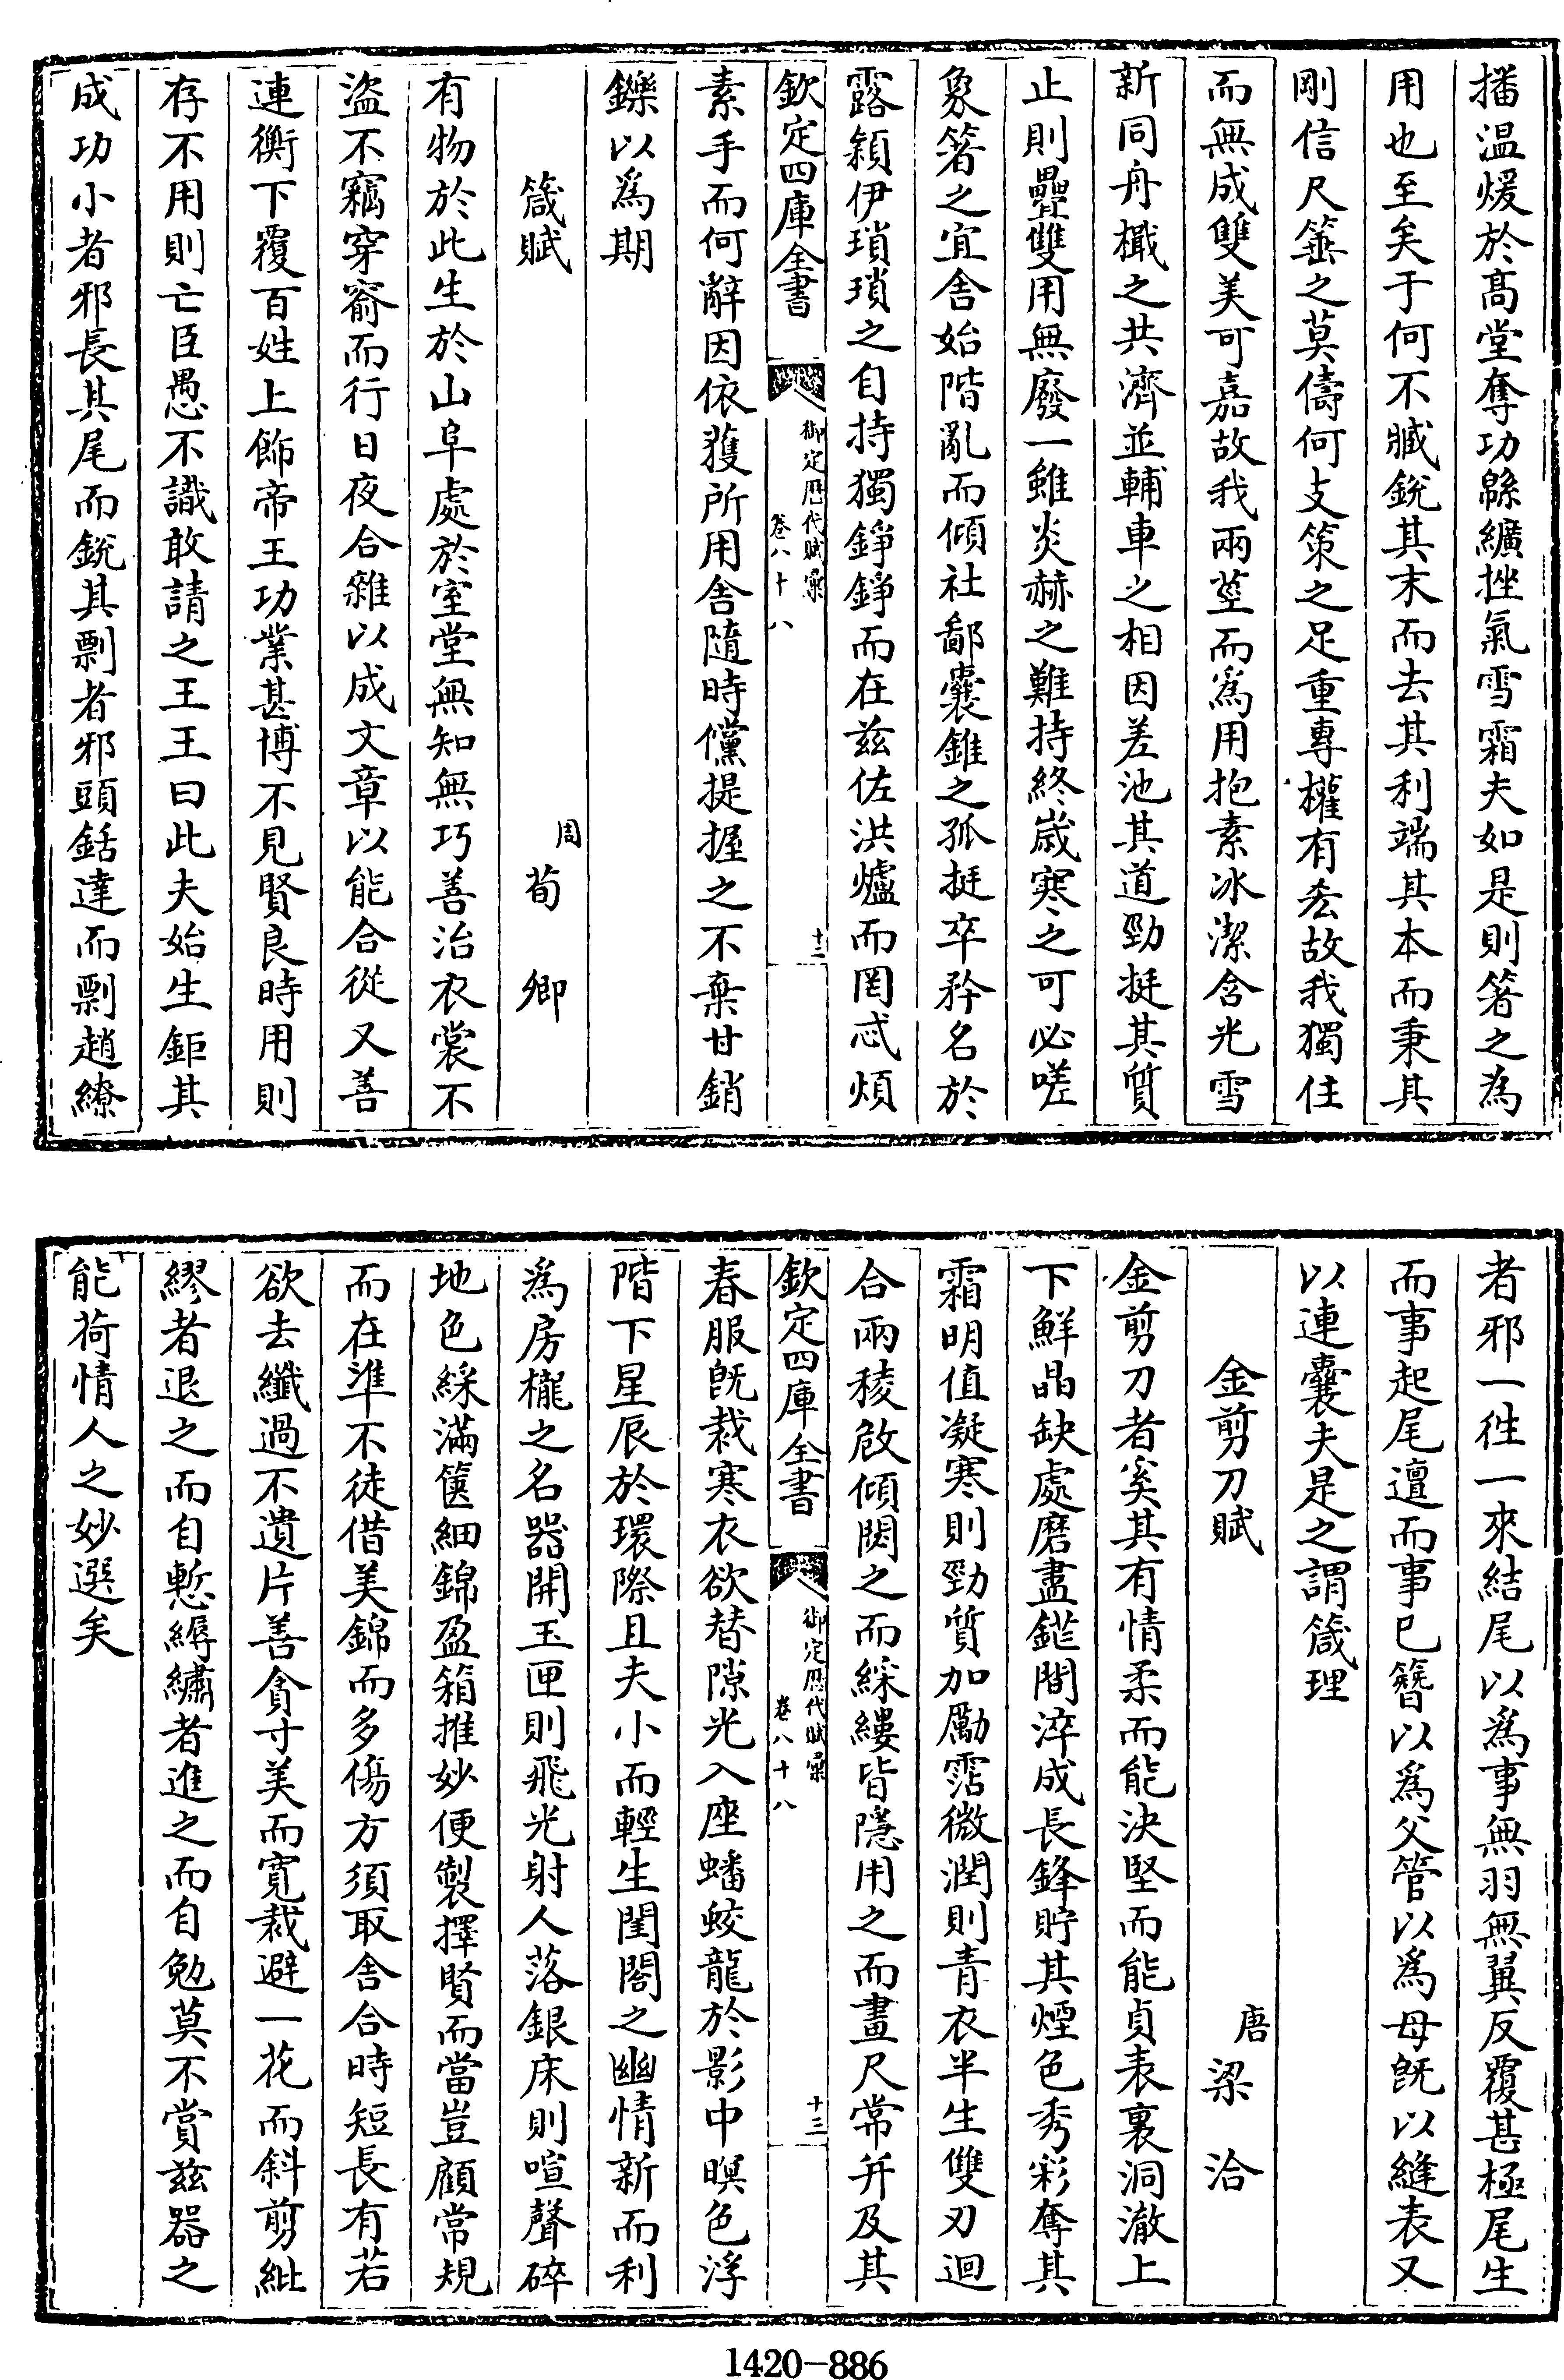 播温煖於髙堂奪功緜纊挫氣雪霜夫如是則箸之為
用也至矣于何不臧銳其末而去其利端其本而秉其
剛信尺箠之莫儔何支策之足重專權有厺故我獨住
而無成雙美可嘉故我兩莖而爲用抱素冰潔含光雪
新同舟檝之共濟並輔車之相因差池其道勁挺其質
止則疊雙用無廢一雖炎赫之難持終歳寒之可必嗟
象箸之宜舍始階亂而傾社鄙囊錐之孤挺卒矜名於
露穎伊瑣瑣之自持獨錚錚而在兹佐洪爐而罔忒煩
欽定四庫全書
御定歷代賦彙
卷八十八
十二
素手而何辭因依獲所用舍隨時儻提握之不棄甘銷
鑠以爲期
箴賦
周
荀卿
有物於此生於山阜處於室堂無知無巧善治衣裳不
盜不竊穿窬而行日夜合離以成文章以能合從又善
連衡下覆百姓上飾帝王功業甚博不見賢良時用則
存不用則亡臣愚不識敢請之王王曰此夫始生鉅其
成功小者邪長其尾而銳其剽者邪頭銛達而剽趙繚
者邪一徃一來結尾以爲事無羽無翼反覆甚極尾生
而事起尾邅而事已簪以爲父管以爲母旣以縫表又
以連囊夫是之謂箴理
金剪刀賦
唐
梁洽
金剪刀者奚其有情柔而能決堅而能貞表裏洞澈上
下鮮晶缺處磨盡鎈間淬成長鋒貯其煙色秀彩奪其
霜明值凝寒則勁質加勵霑微潤則青衣半生雙刃迴
合兩稜啟傾閲之而綵縷皆隱用之而畫尺常并及其
欽定四庫全書
御定歷代賦彙
卷八十八
十三
春服旣裁寒衣欲替隙光入座蟠蛟龍於影中暝色浮
階下星辰於環際且夫小而輕生閨閤之幽情新而利
爲房櫳之名器開玉匣則飛光射人落銀床則喧聲碎
地色綵滿篋細錦盈箱推妙便製擇賢而當豈顧常規
而在準不徒借美錦而多傷方須取舍合時短長有若
欲去纖過不遺片善貪寸美而寛裁避一花而斜剪紕
繆者退之而自慙縟繡者進之而自勉莫不賞兹器之
能荷情人之妙選矣
1420-886